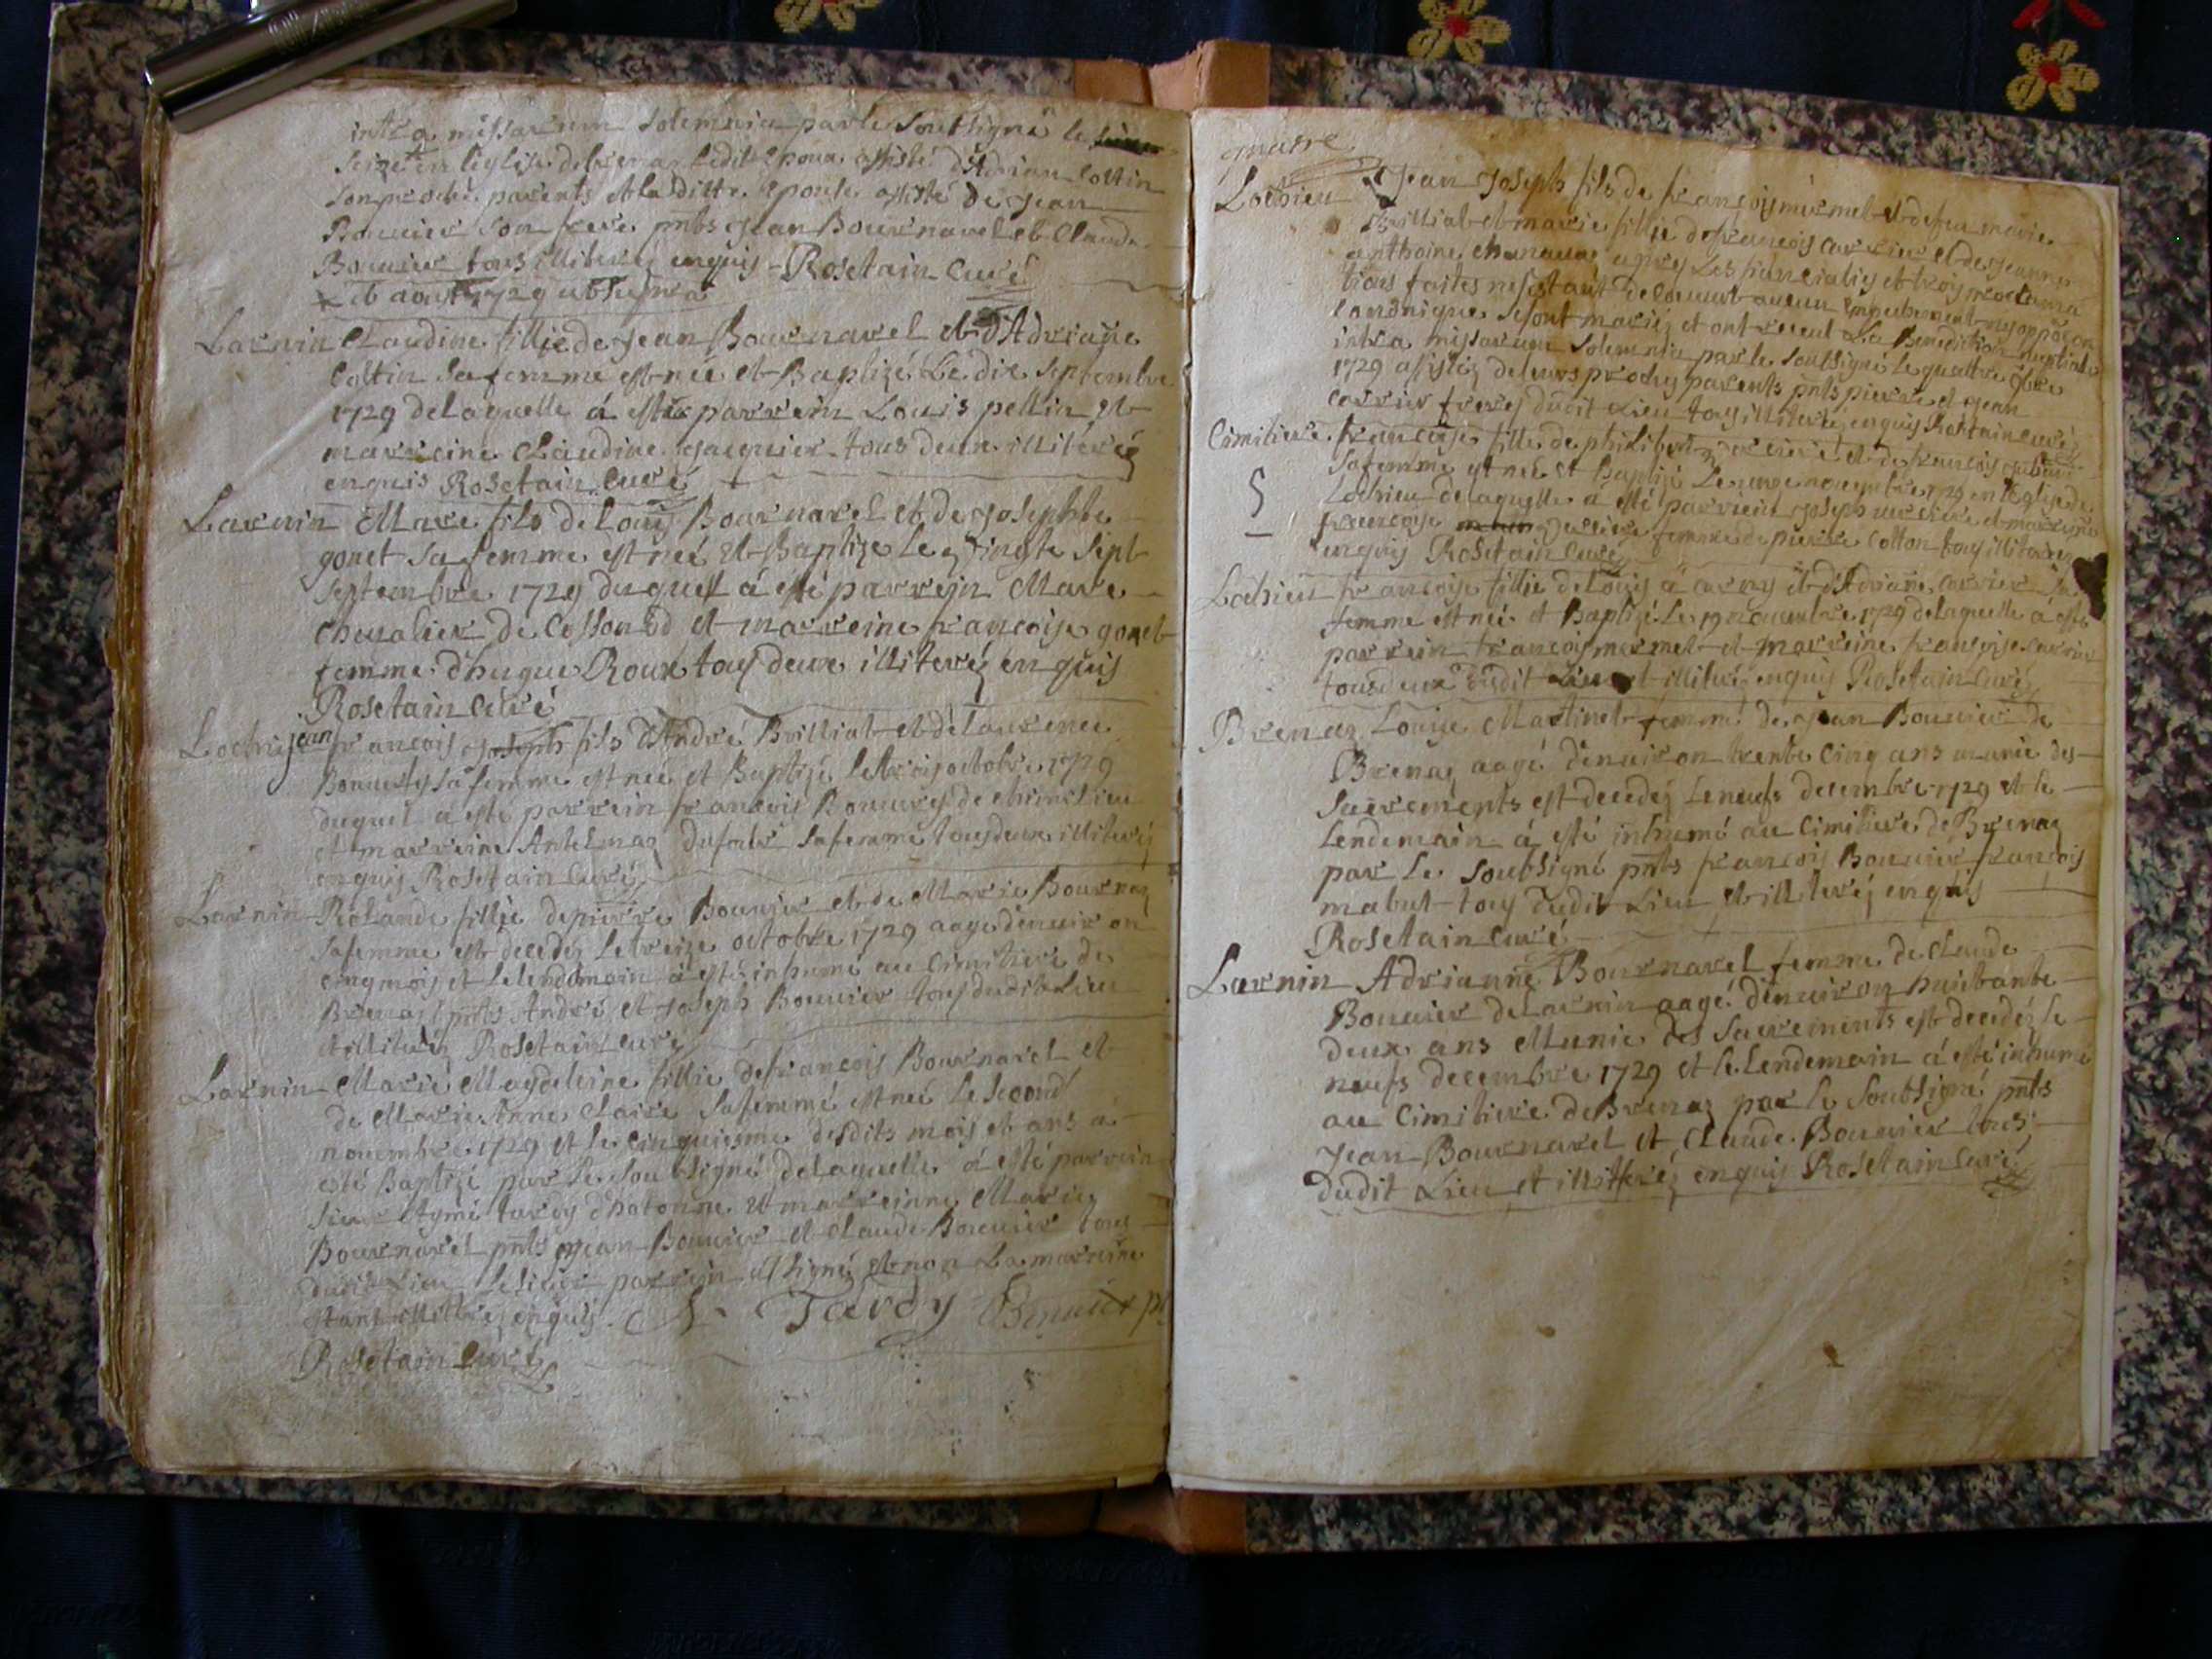 intra missarum solemnia par le soubsigné le
seize en leglise de brenaz ledit Epoux assisté d'Adrian Coltin
son proche parents et la ditte Epouse assisté de jean
Bouuier son frere pnts jean Bournarel et Claude
Bouuier tous illiterez enquis Rosetain Curé
x et aoust 1729 ut supra
Larnin Claudine fillie de jean Bournarel et d'Adriane
Coltin sa femme est née et Baptizé Le dix septembre
1729 de laquelle á esté parrein Louis pellin et
marreine Claudine jacquier tous deux illiteréz
enquis Rosetain Curé
Larnin Marc fils de Louis Bournarel et de josephte
gonet sa femme est né et Baptize le vingte sept
septembre 1729 duquel á esté parrejn Marc
cheualier de et marreine francoise gonet
femme d'hugue Roux tous deux illiteréz enquis
Rosetain Curé
Lochieu jean francois joseph fils d'André Brilliat et de Laurence
sa femme est né et Baptizé le trois octobre 1729
duquel a esté parrein francois de
et marreine sa femme tous deux illiteréz
enquis Rosetain Curé
Larnin Rolande fillie de pierre Bouuier et de Marie Bournaz
sa femme est decedéz le treize octobre 1729 aagé d'enuiron
cinq mois et le lendemain á esté inhumé au Cimitiere de
Brenaz pnts André et joseph Bouuier tous dudit Lieu
et illiteréz Rosetain Curé
Larnin Marie Magdeleine fillie de francois Bournarel et
de Marie Anne Claire sa femme est née le second
nouembre 1729 et le cinquiesme desdits mois et ans á
esté Baptizé par le soubsigné de laquelle á esté parrein
sieur Aymé tardy d'hotonne et marreinne Marie
Bournarel pnts jean Bouuier et Claude Bouuier tous
dudit Lieu le sieur parrein a signé et non La marreine
estant illitérez enquis. Tardy
Rosetain Curé
Lochieu Jean joseph fils de francois mermet et de feu marie
Brilliat et marie fillie de francois Carrier et de jeanne
anthoine apres Les fiancialies et trois proclama
tions faites ne sestant decouuert aucun Empechement ny opposion
Canonique se sont mariéz et ont receut La Benediction nuptiale
intra missarum solemnia par le soubsigné Le quattre 9bre
1729 assistéz de leurs proches parents pnts pierre et jean
Carrier freres dudit Lieu tous illiteréz enquis Rosetain Curé
francoise fille de philibert et de francoise
sa femme est née et Baptizé Le onze nouembre 1729 en leglise de
Lochieu de laquelle a esté parrein joseph et marreine
francoise femme de pierre Cotton tous illiteréz
enquis Rosetain Curé
Lochieu francoise fillie de Louis et d'Adriane Carrier sa
femme est née et Baptizé Le 19 nouembre 1729 de laquelle á esté
parrein francois mermet et marreine francoise Carrier
tous deux dudit Lieu et illiteréz enquis Rosetain Curé
Brenaz Louise Martinet femme de jean Bouuier de
Brenaz aagé d'enuiron trente Cinq ans munie des
sacrements est decedéz le neufs decembre 1729 et le
Lendemain á esté inhumé au Cimitiere de Brenaz
par le soubsigné pnts francois Bouuier francois
mabut tous dudit Lieu et illiteréz enquis
Rosetain Curé
Larnin Adrianne Bournarel femme de claude
Bouuier de Larnin aagé d'enuiron huictante
deux ans Munie des sacrements est decedéz le
neufs decembre 1729 et le Lendemain á esté inhumé
au Cimitiere de Brenaz par le soubsigné pnts
jean Bournarel et Claude Bouuier tous
dudit Lieu et illiteréz enquis Rosetain Curé